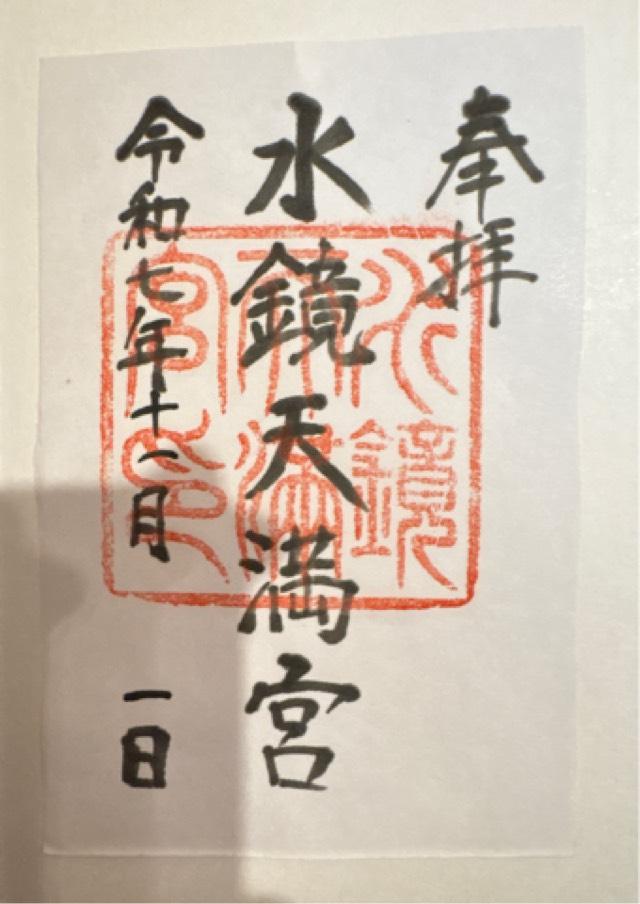 奉拝
水鏡天満宮
令和七年十一月 一日
水鏡天満宮印